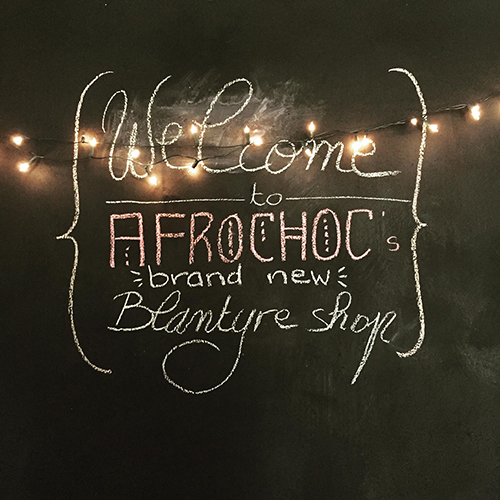 Welcome
to
AFROCHOC's
brand new
Blantyre shop